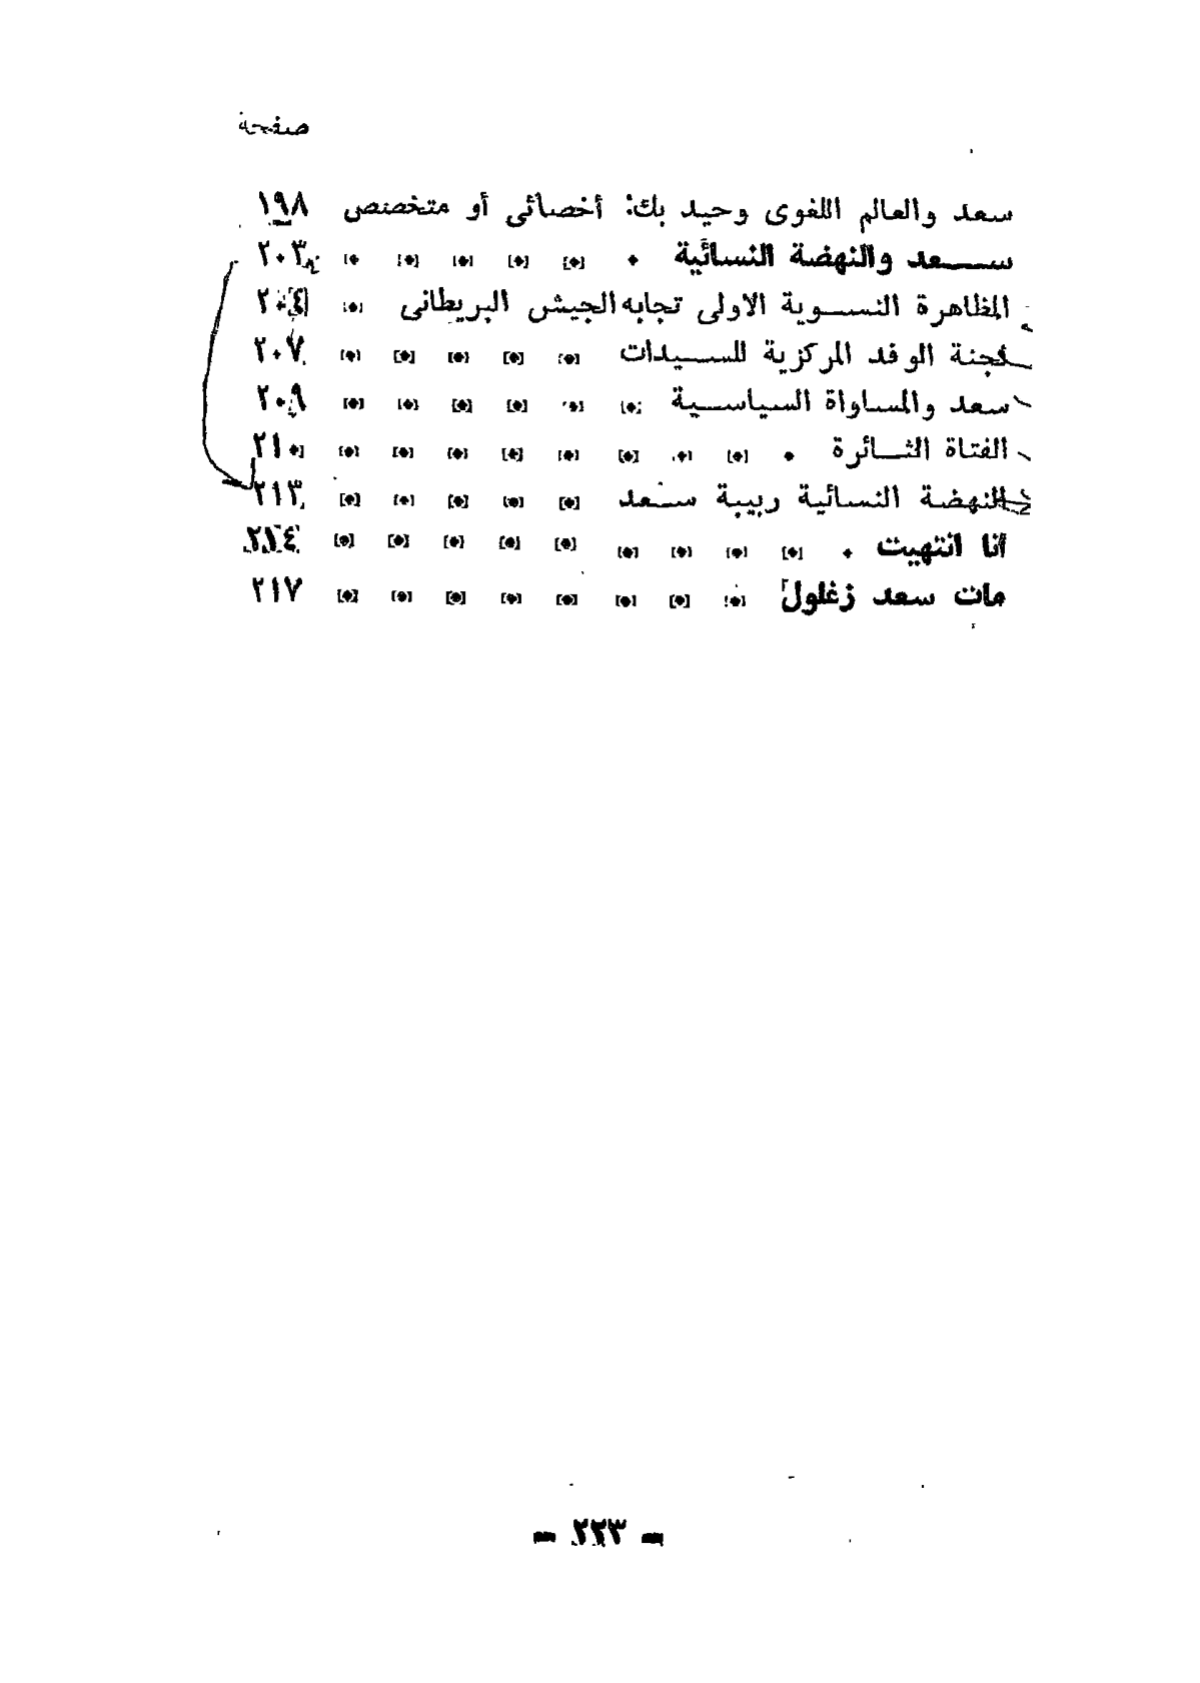 صفحة
سعد والعالم اللغوى وحيد بك: أخصائى أو متخصص ١٩٨
ســعد والنهضة النسائية ٢٠٣
المظاهرة النسـوية الاولى تجابه الجيش البريطانى ٢٠٤
لجنة الوفد المركزية للسـيدات ٢٠٧
سعد والمساواة السياسـية ٢٠٩
الفتاة الثـائرة ٢١٠
النهضة النسائية ربيبة سـعد ٢١٣
أنا انتهيت ٢١٤
مات سعد زغلول ٢١٧
— ٢٢٣ —